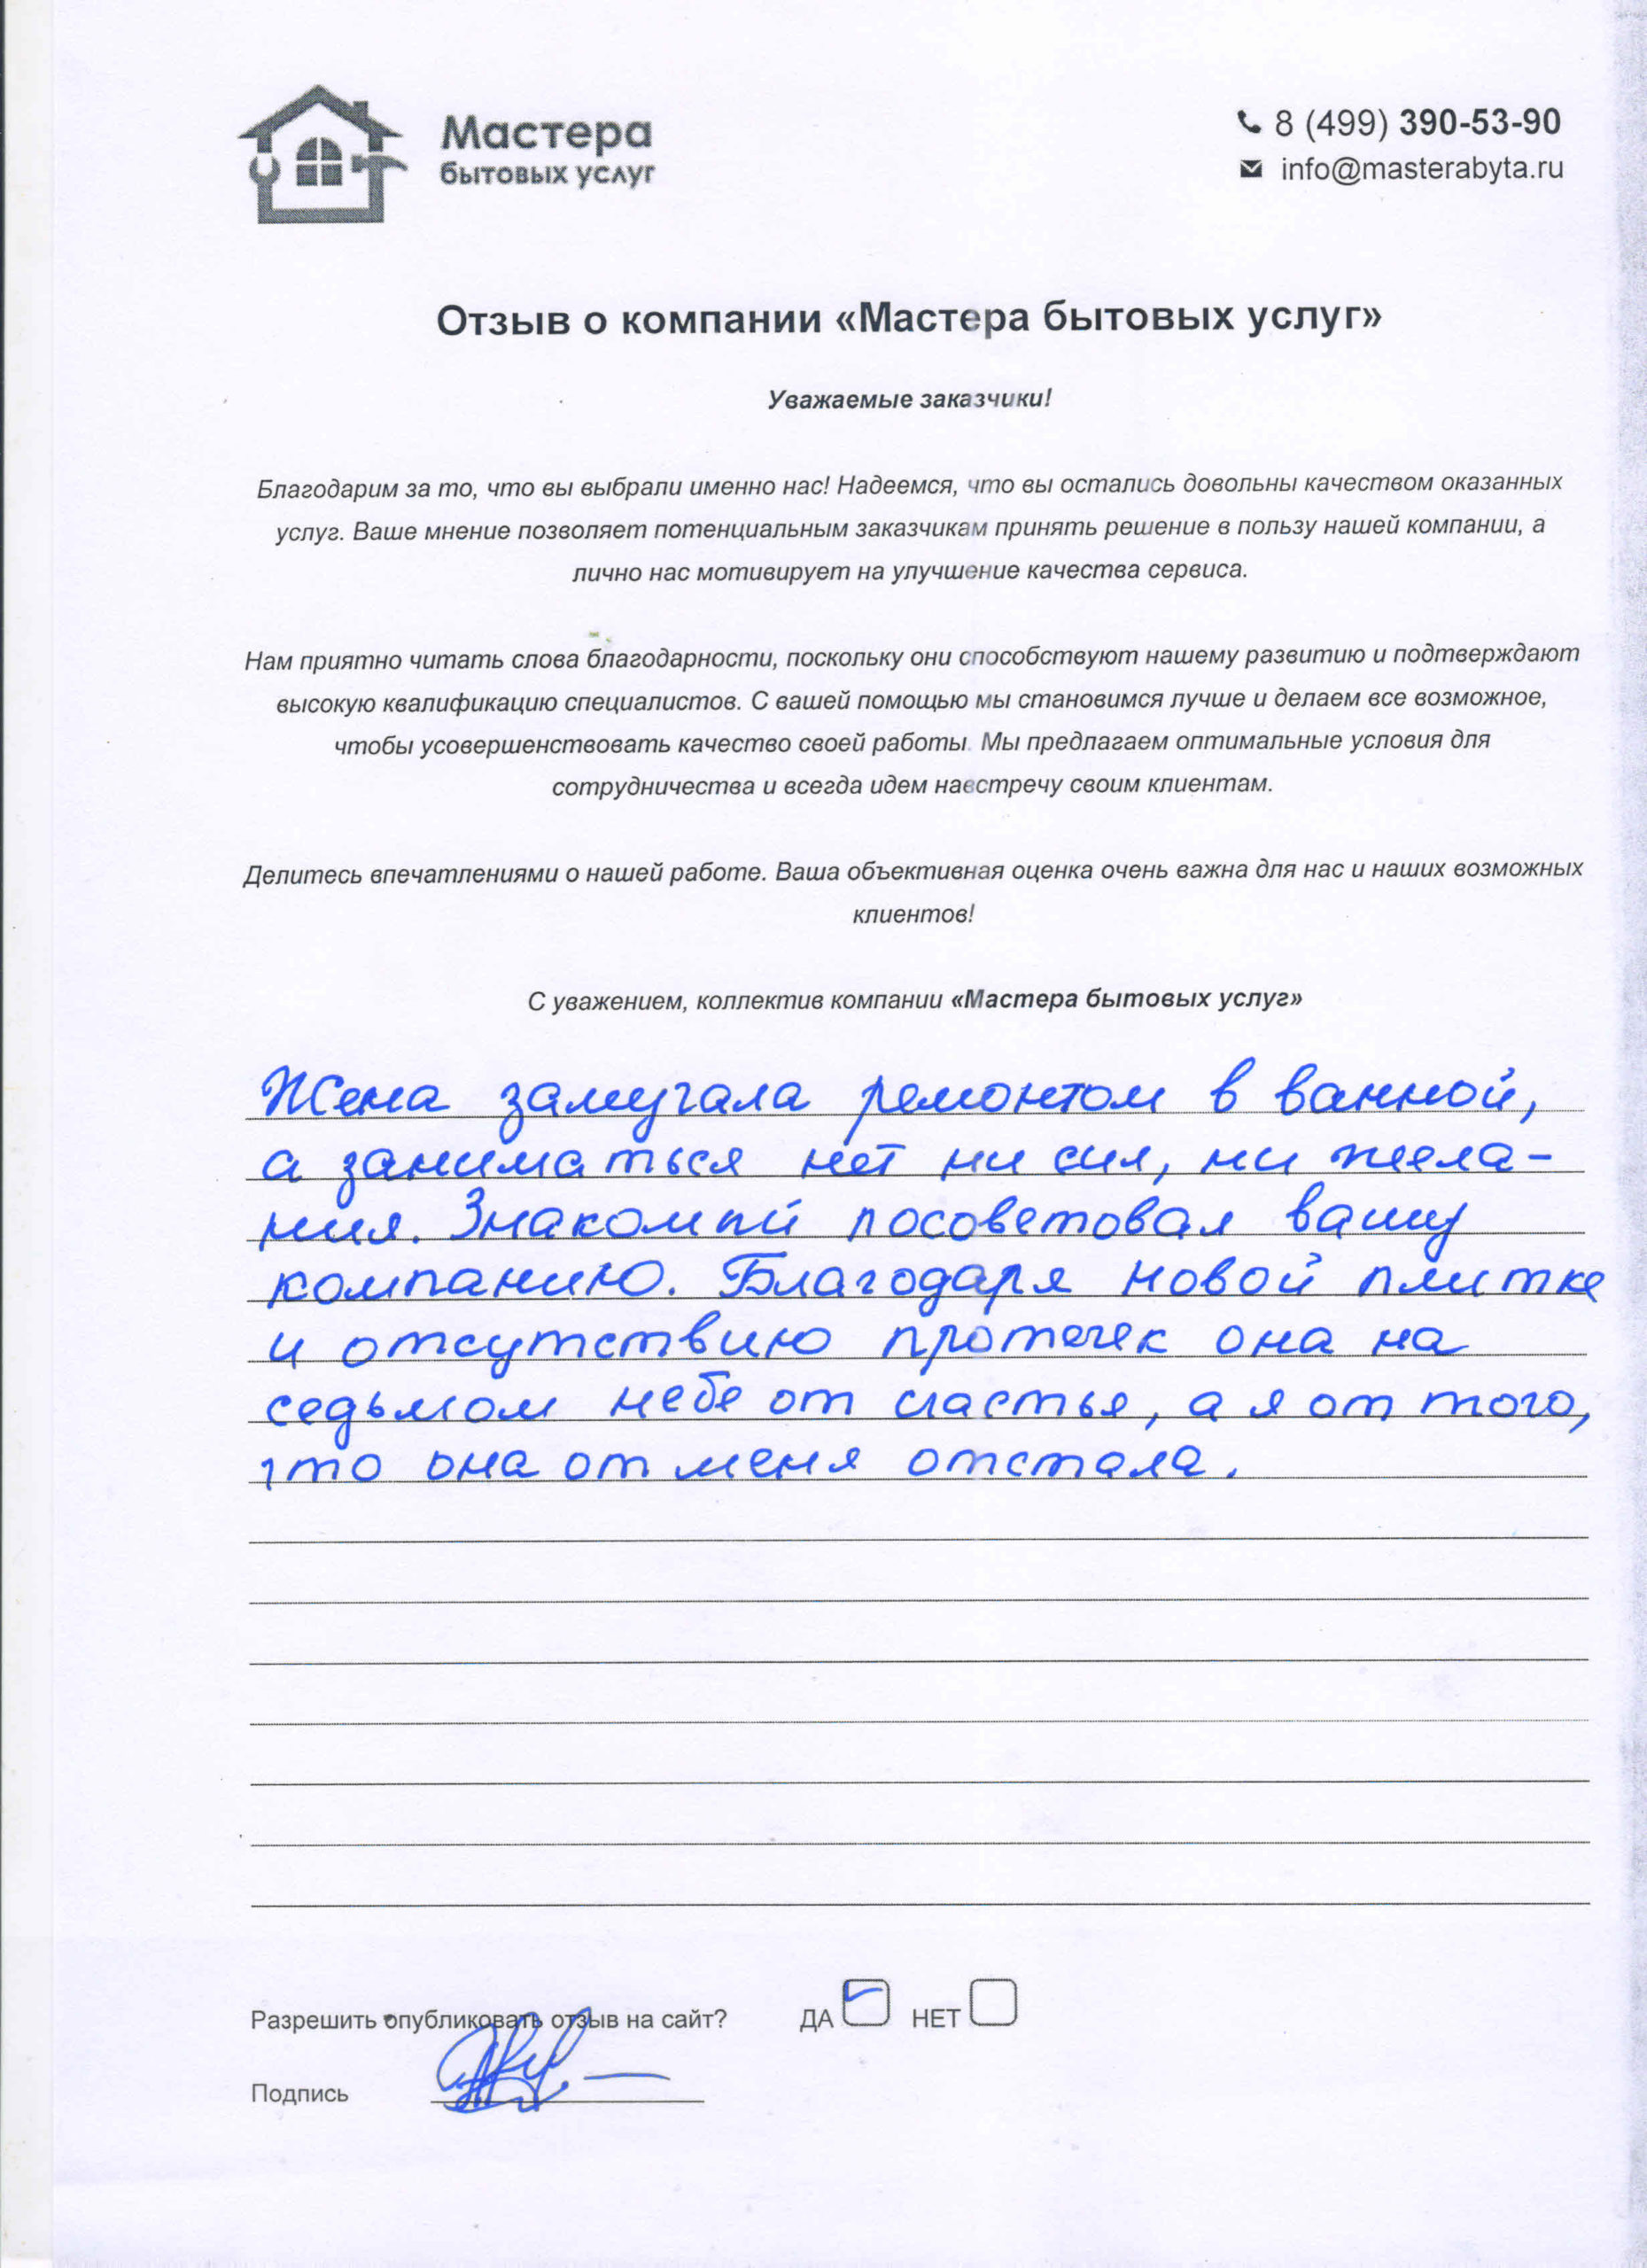 Мастера
бытовых услуг
8 (499) 390-53-90
info@masterabyta.ru
Отзыв о компании «Мастера бытовых услуг»
Уважаемые заказчики!
Благодарим за то, что вы выбрали именно нас! Надеемся, что вы остались довольны качеством оказанных
услуг. Ваше мнение позволяет потенциальным заказчикам принять решение в пользу нашей компании, а
лично нас мотивирует на улучшение качества сервиса.
Нам приятно читать слова благодарности, поскольку они способствуют нашему развитию и подтверждают
высокую квалификацию специалистов. С вашей помощью мы становимся лучше и делаем все возможное,
чтобы усовершенствовать качество своей работы. Мы предлагаем оптимальные условия для
сотрудничества и всегда идем навстречу своим клиентам.
Делитесь впечатлениями о нашей работе. Ваша объективная оценка очень важна для нас и наших возможных
клиентов!
С уважением, коллектив компании «Мастера бытовых услуг»
Жена замучала ремонтом в ванной,
а заниматься нет ни сил, ни жела-
ния. Знакомый посоветовал вашу
компанию. Благодаря новой плитке
и отсутствию протечек она на
седьмом небе от счастья, а я от того,
что она от меня отстала.
Разрешить опубликовать отзыв на сайт? ДА НЕТ
Подпись